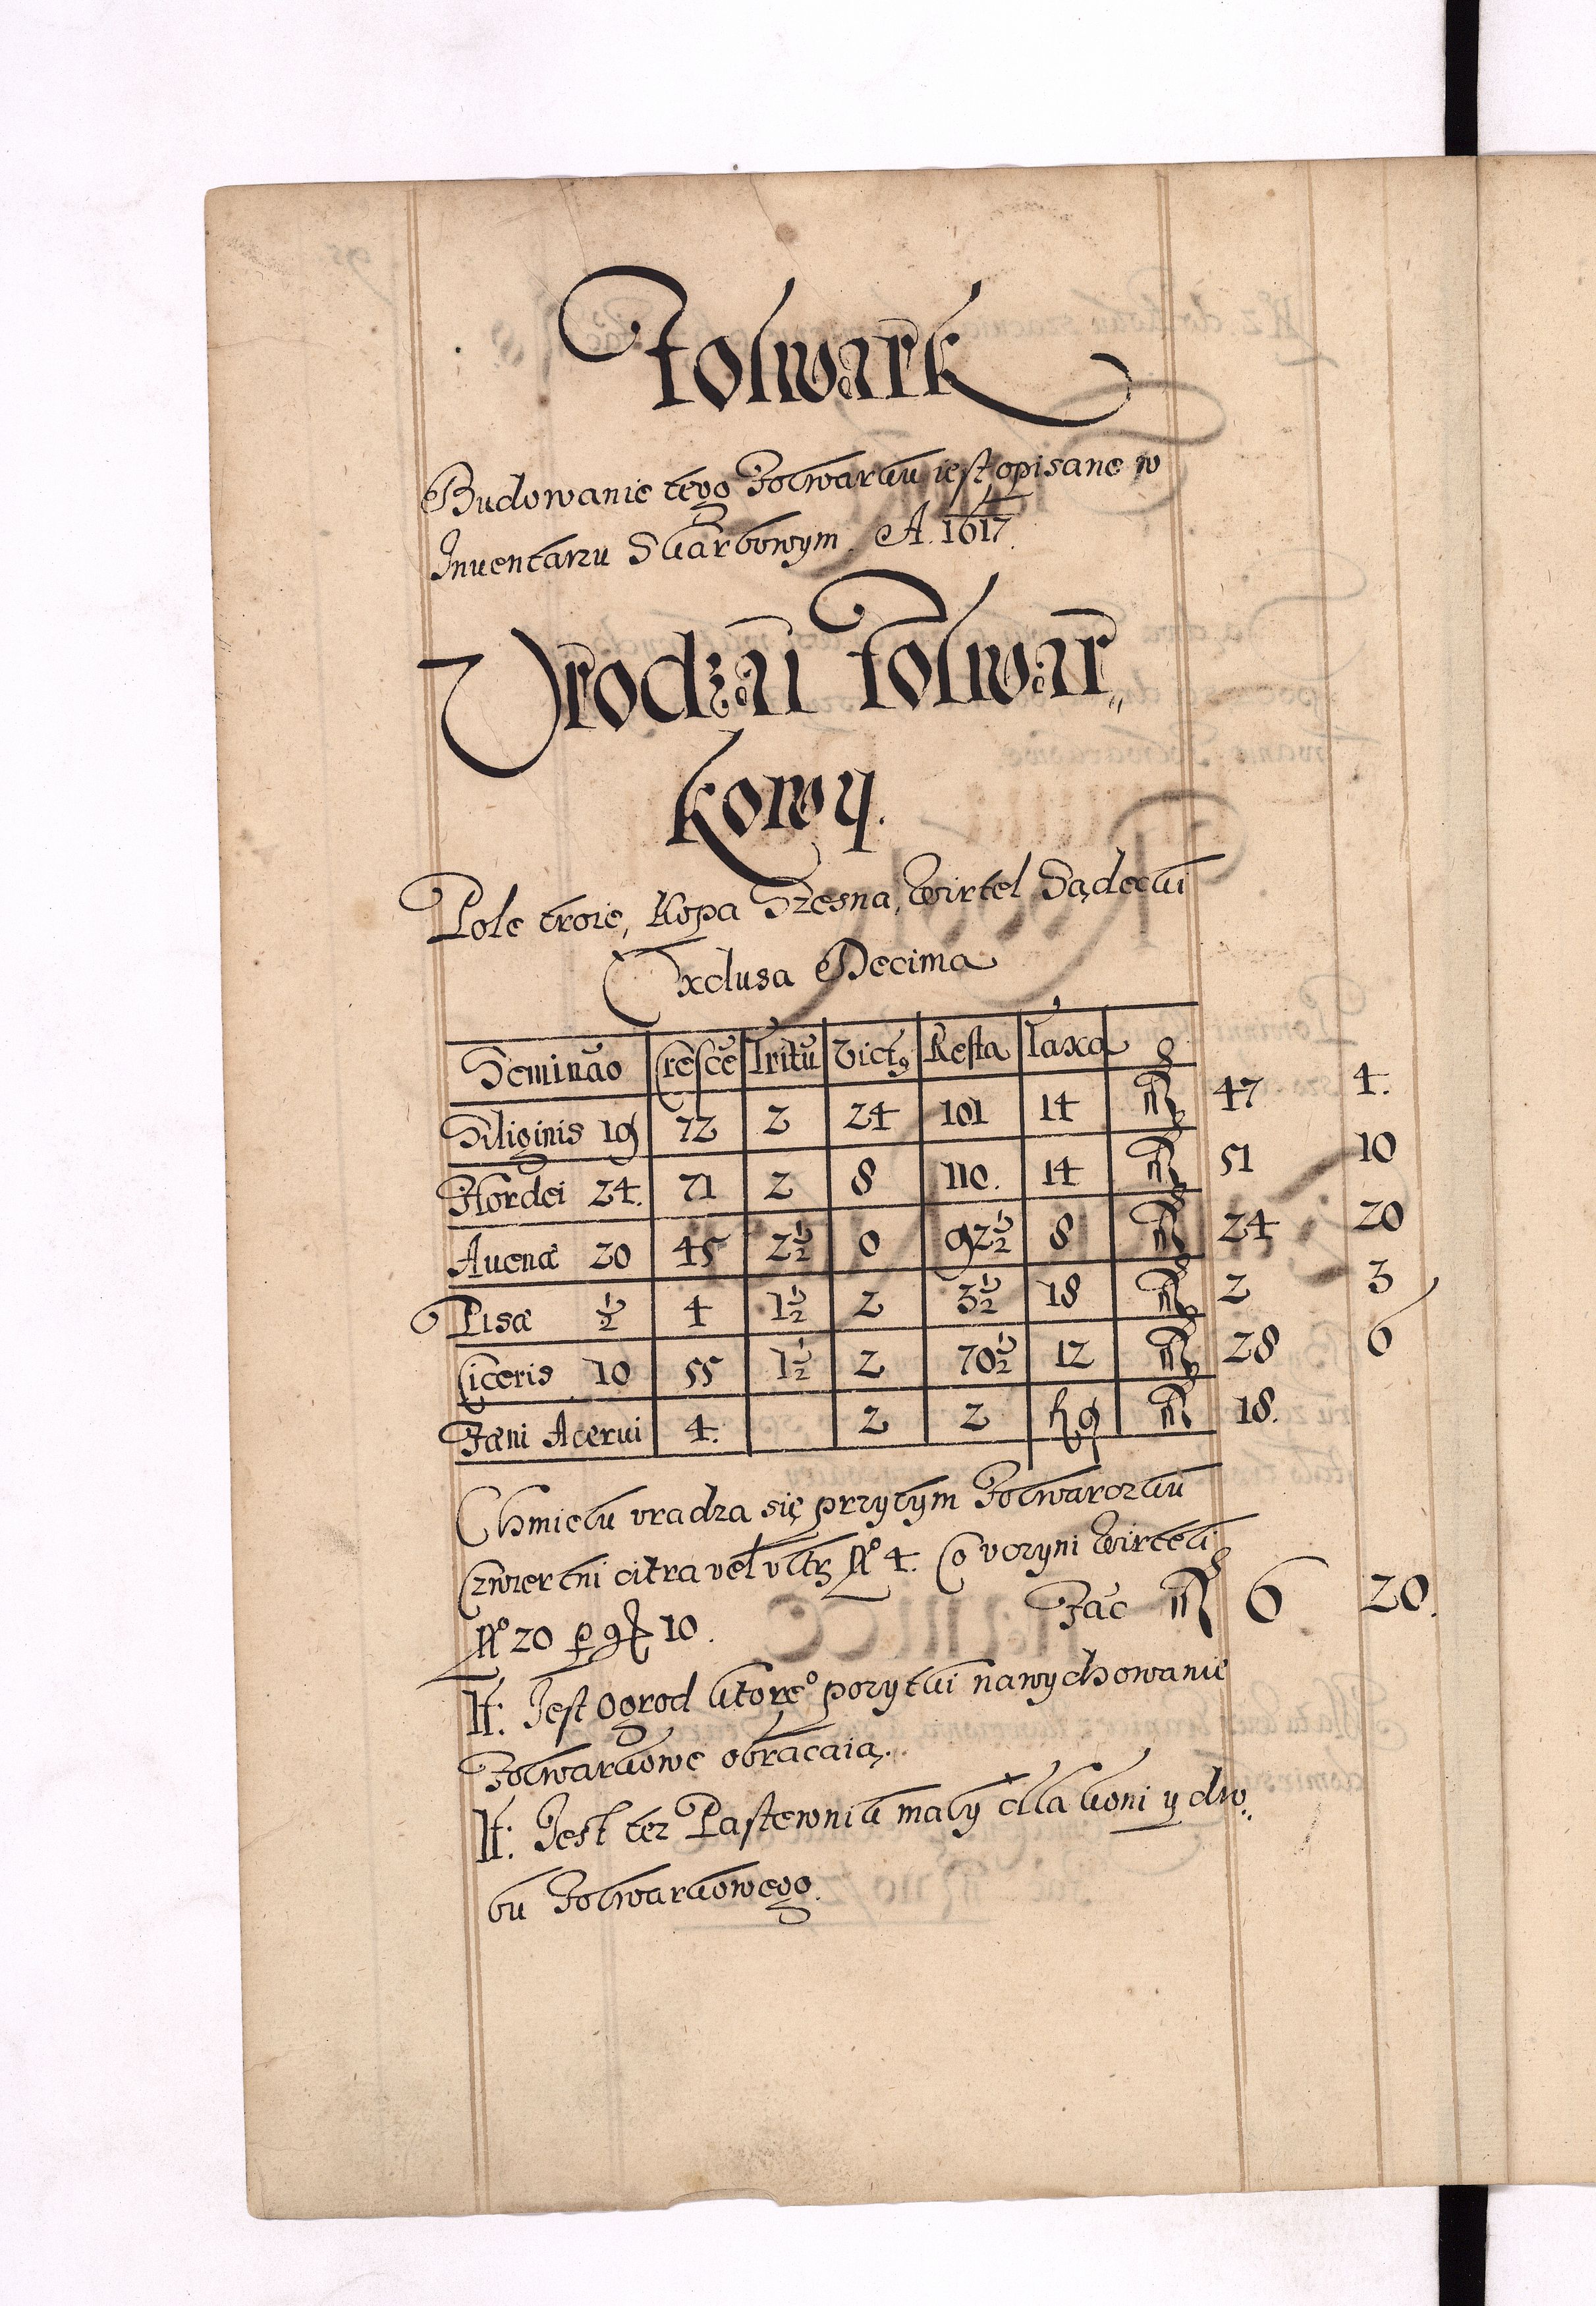 Folwark
Budowanie tego Folwarku iest opisane w
Inuentarzu Skarbowym. A. 1617.
Vrodzai Folwar„
kowy.
Pole troie, Kopa Szesna, Cwirtel Sądecki
Exclusa Decima
Seminão Crescẽ Tritũ Victꝰ Resta Taxa
Siliginis 19 72 2 24 101 14 47 4.
Hordei 24. 71 2 8 110. 14 51 10
Auenæ 20 45 2½ 0 92½ 8 24 20
Pisæ ½ 4 1½ 2 3½ 18 2 3
Ciceris 10 55 1½ 2 70½ 12 28 6
Fæni Acerui 4. 2 2 18.
Chmielu vradza się przytym Folwarczku
Czwiertni citra vel vltr No 4. Co vczyni Cwirteli
No 20 per 10. Fac 6 20.
It: Iest Ogrod ktorego pozytki nawychowanie
Folwarkowe obracaią.
It: Iest tez Pastewnik mały dla koni y dro„
bu Folwarkowego.